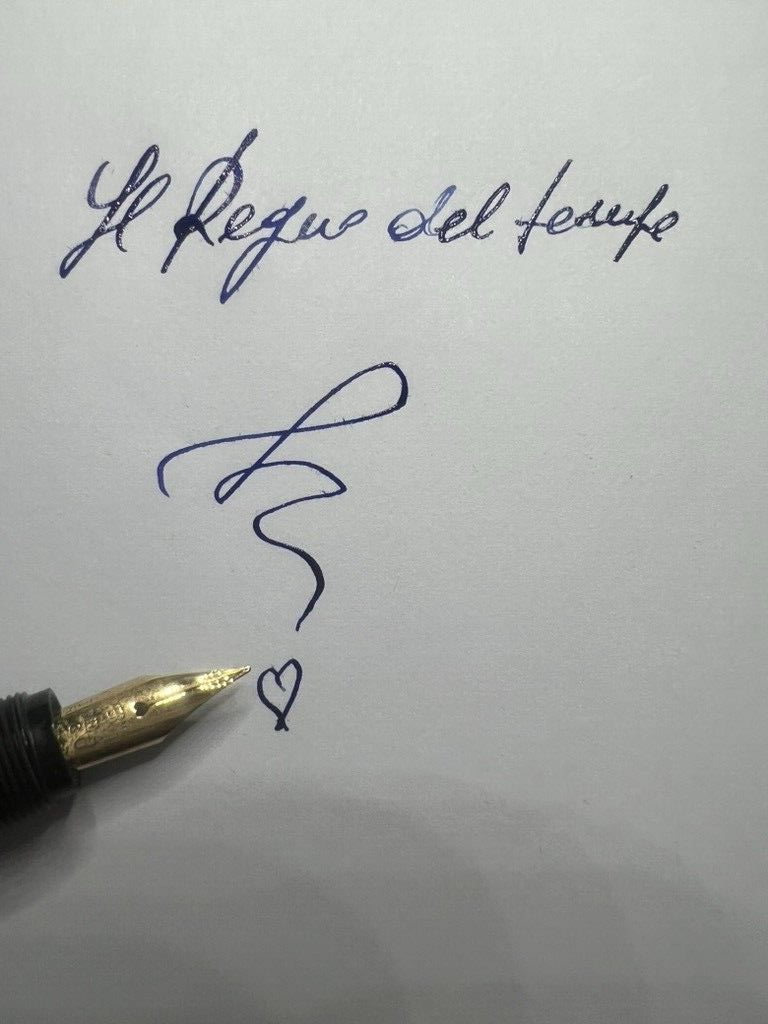 Il Regno del tempo